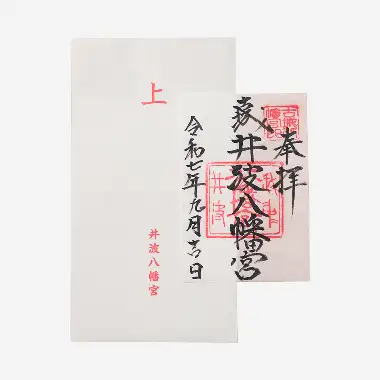 上
井波八幡宮
奉拝
井波八幡宮
令和七年九月吉日